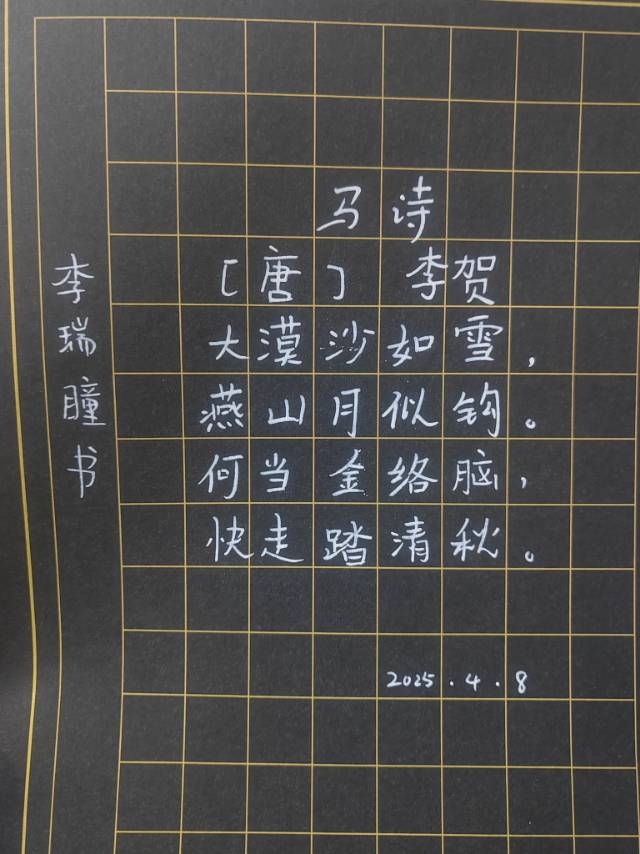 马诗
[唐] 李贺
大漠沙如雪，
燕山月似钩。
何当金络脑，
快走踏清秋。
2025.4.8
李瑞瞳书